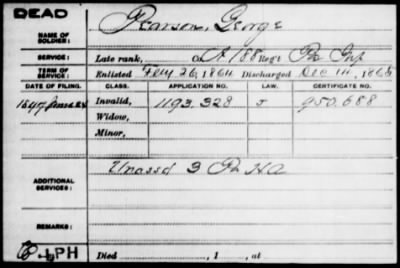 DEAD
NAME OF SOLDIER: Pearson, George
SERVICE: Late rank, Co. A 188 Reg't Pa Inf
TERM OF SERVICE: Enlisted Feby 26, 1864 Discharged Dec 14, 1865
DATE OF FILING. CLASS. APPLICATION NO. LAW. CERTIFICATE NO.
1897 June 28 Invalid, 1193.328 J 950.688
Widow,
Minor,
ADDITIONAL SERVICES: Unassd 3 Pa H A
REMARKS:
PH Died , 1 , at